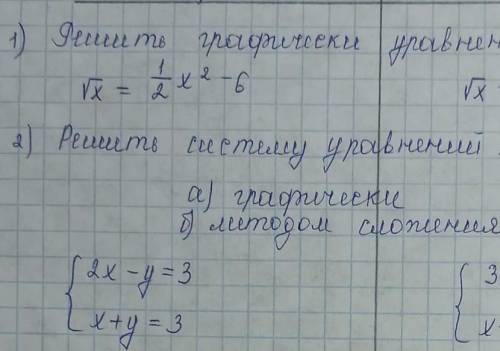 1) Решить графически уравнен
√x = 1/2 x² - 6 √x
2) Решить систему уравнений
а) графически
б) методом сложения
{ 2x - y = 3 { 3
x + y = 3 x